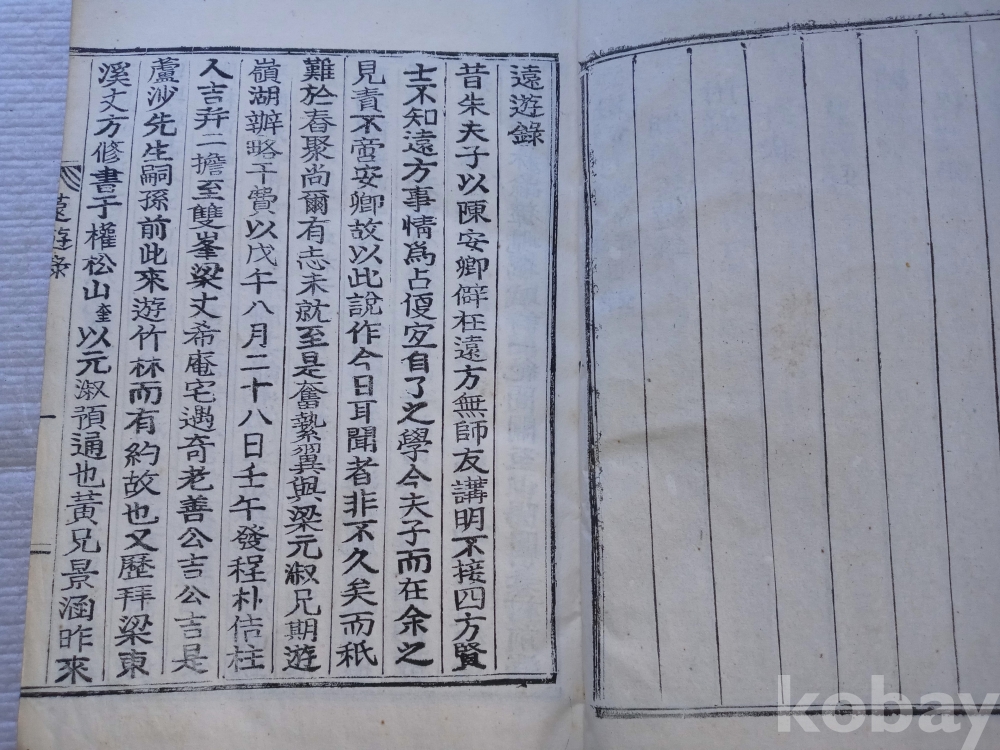 遠遊錄
昔朱夫子以陳安卿僻在遠方無師友講明不接四方賢
士不知遠方事情爲占便宜自了之學今夫子而在余之
見責不啻安卿故以此說作今日耳聞者非不久矣而秖
難於舂聚尚爾有志未就至是奮縶翼與梁元淑兄期遊
嶺湖辦略干費以戊午八月二十八日壬午發程朴佶柱
入吉幷二擔至雙峯梁丈希庵宅遇奇老善公吉公吉是
蘆沙先生嗣孫前此來遊竹林而有約故也又歷拜梁東
溪丈方修書于權松山奎以元淑預通也黃兄景涵昨來
遠遊錄
一
kobay